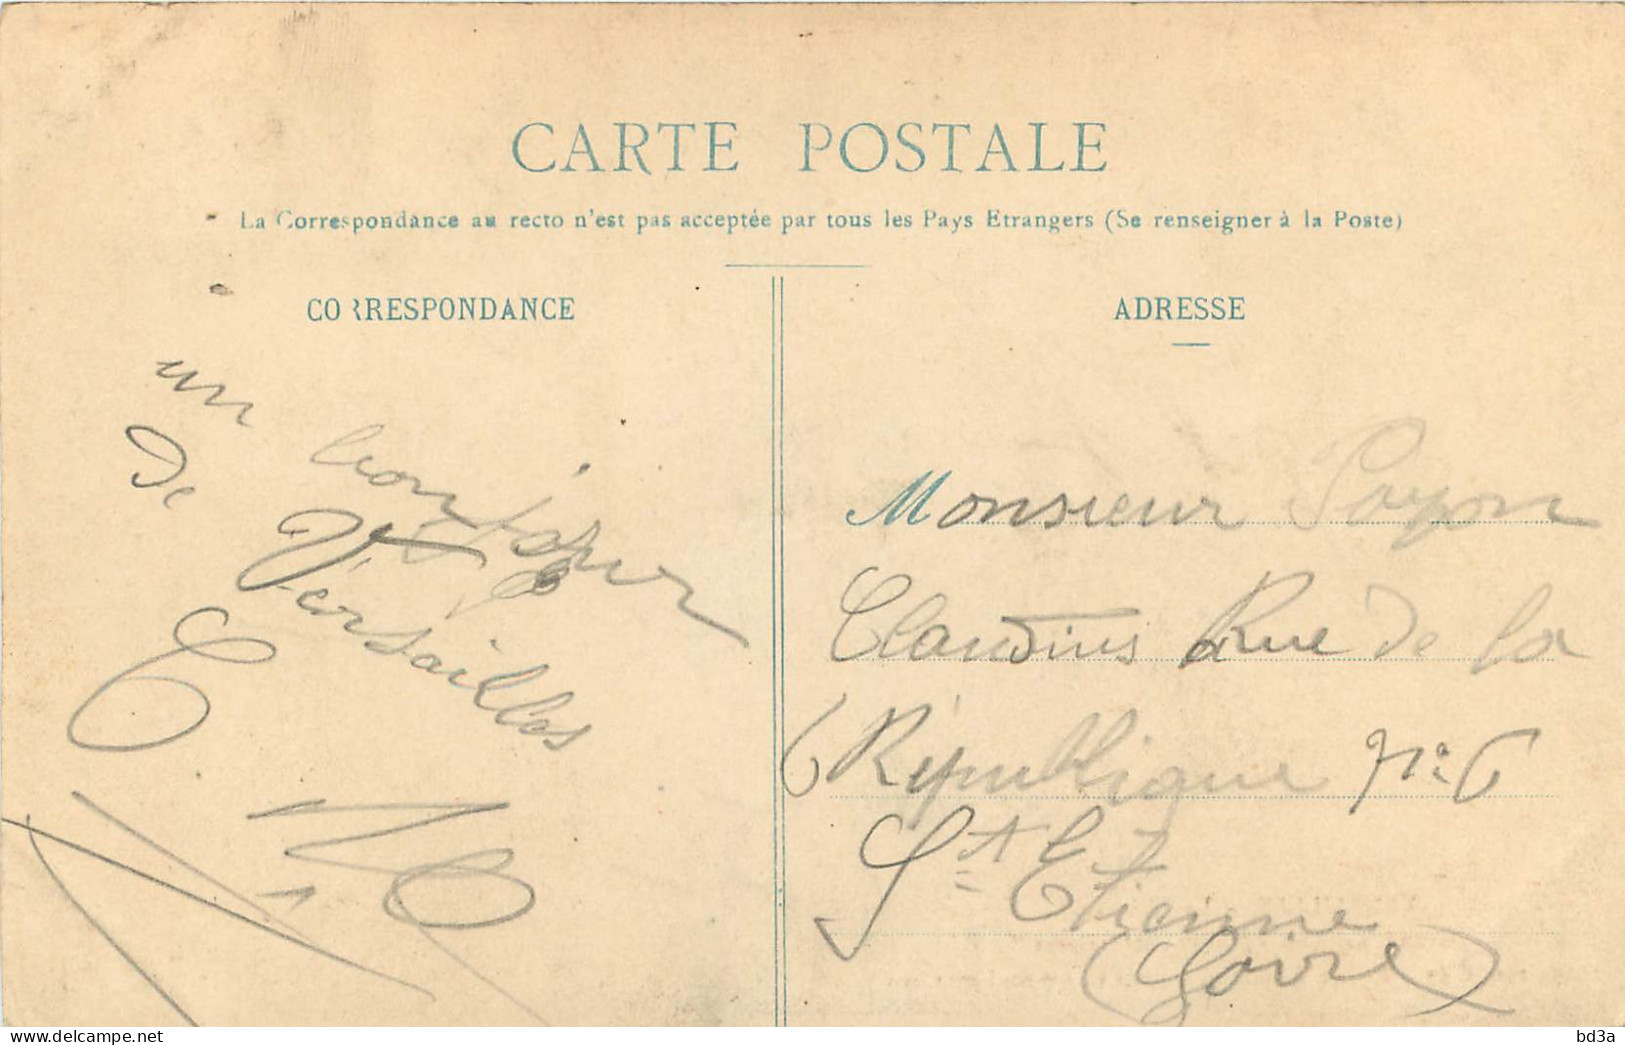 CARTE POSTALE
La Correspondance au recto n'est pas acceptée par tous les Pays Etrangers (Se renseigner à la Poste)
CORRESPONDANCE
un bonjour
De Versailles
ADRESSE
Monsieur Payon
Claudius Rue de la
République N° 6
St Etienne
(Loire)
delcampe.net
bd3a